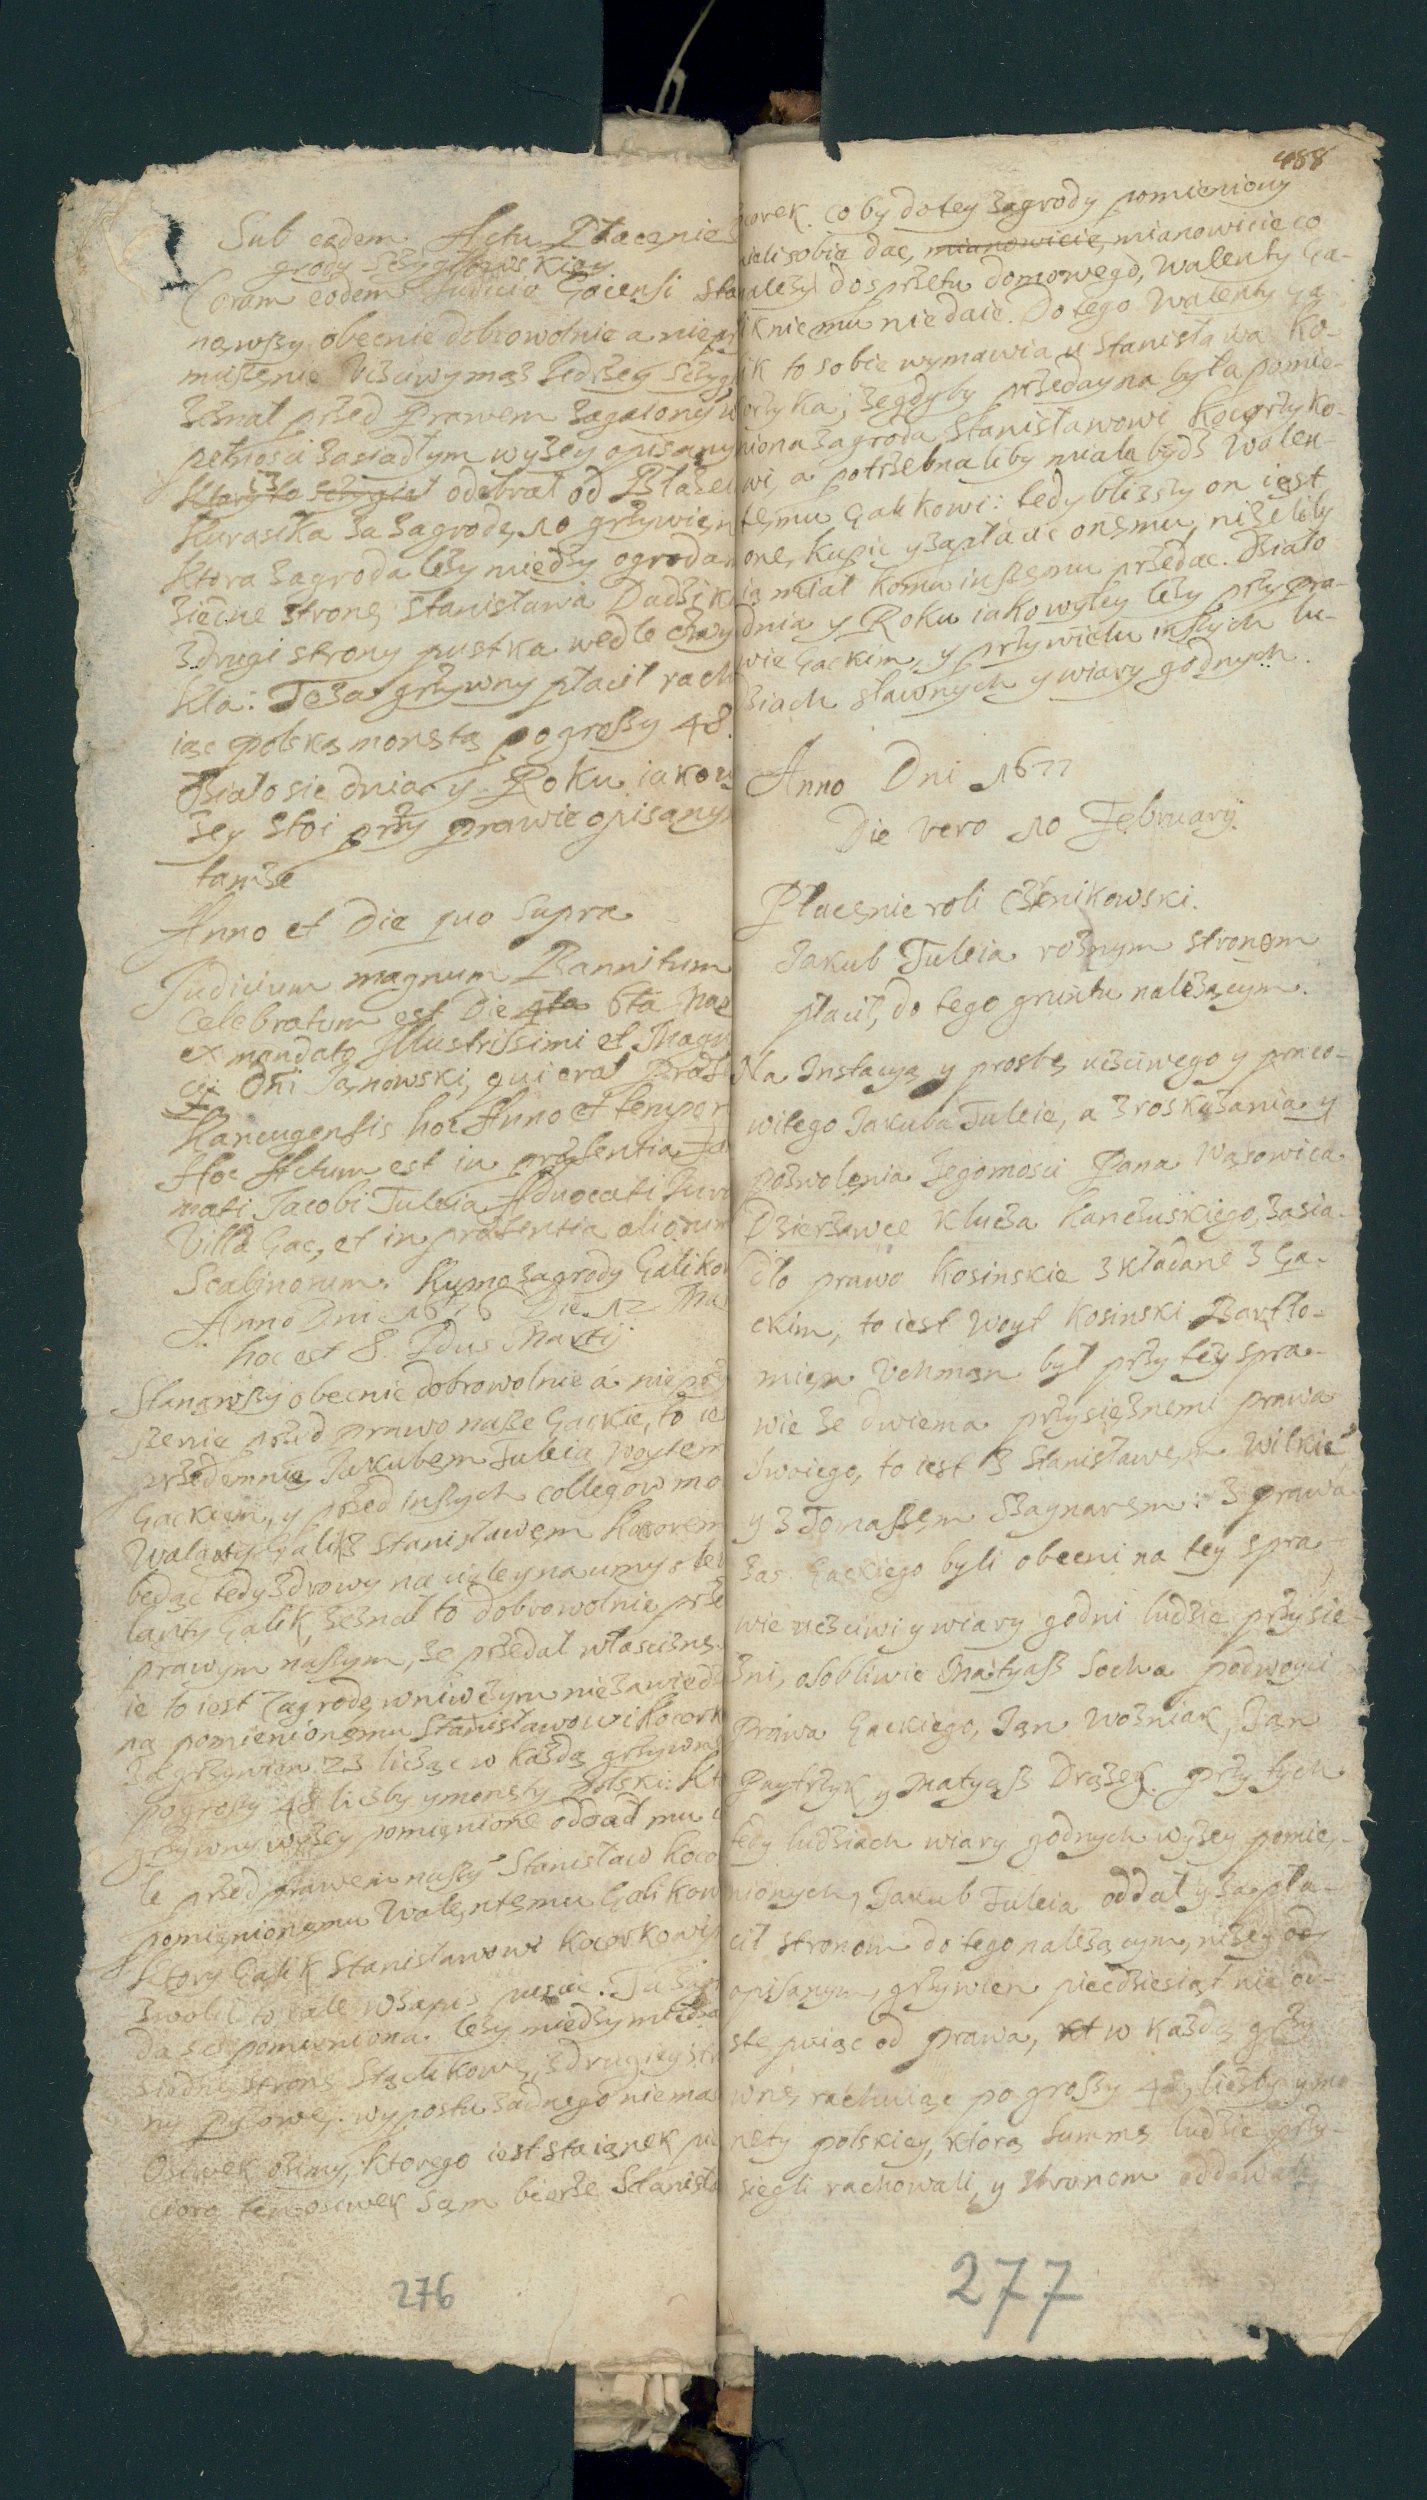 Sub eadem Actu Płacenie Za
grody Scżygłowskiey
Coram eodem Judicio Gacensi Sta
nąwszy obecnie dobrowolnie a niepr
muszenie Vżciwy mąż Jedrzey Scżyg
zeznał przed Prawem zagaiony w
pełnosci zasiadłym wyżey opisany
iż odebrał od Błażeia
Kurasika za zagrodę, 10 grzywien
Ktora zagroda leży miedzy ogrodam
ziedne stronę Stanisława Dudzika
z drugi strony pustka wedle
kla: Teza grzywny płacił rach
iąc polską monetą po groszy 48.
Działo sie dnia y Roku iako wy
żey stoi przy prawie opisany
tamże
Anno et Die quo Supra
Judicium magnum Bannitum
Celebratum est Die 4ta 6ta Mar
ex mandato Illustrissimi et Magni
ci Dni Janowski, qui erat Præf
Kancugensis hoc Anno et tempor
Hoc Actum est in præsentia Fa
mati Jacobi Tuleia Aduocati Jura
Villa Gac, et in præsentia aliorum
Scabinorum. Kupno zagrody Galikow
Anno Dni 1676 Die 12 Ma
hoc est 8. Idus Martij
Stanąwszy obecnie dobrowolnie a nieprzy
szenie przed prawo nasze Gackie, to ie
przedemnie Jakubem Tuleią woytem
Gackiem, y przed inszych collegow mo
Walenty Galik z Stanisławem Kocorem
będąc tedy zdrowy na ciele y na umysle
lanty Galik, zeznał to dobrowolnie prze
prawym naszym, że przedał własciznę
ie to iest Zagrodę wniwczym nie zawied
ną pomienionemu Stanisławowi Kocork
za grzywien 23 licząc w każdą grzywnę
po groszy 48 liczby y monety Polski: Kt
grzywny wyżey pomienione oddał mu
le przed prawem naszy Stanisław Koco
pomienionemu Walentemu Galikow
Ktory Galik Stanisławowi Kocorkowi
zwolił to cale wzapis pusćic. Ta zagro
da zas pomieniona leży miedzy miedza
ziedne stronę Stachkowe, zdrugiey st
ny Pyżowe. wypostu żadnego niema
Osiwek ozimy, ktorego iest staianek pu
ciora ten osiwek sam bierze Stanisła
488
corek. co by do tey zagrody pomieniony
mieli sobie dac, mianowicie, mianowicie co
należy do sprzetu domowego, Walenty Ga-
lik nie mu nie daie. Do tego Walenty Ga-
lik to sobie wymawia u Stanisława Ko-
corzyka; że gdyby przedayna była pomie-
niona zagroda Stanisławowi Kocorzyko-
wi, a potrzebna liby miala bydz Walen-
temu Galikowi: tedy bliższy on iest
one, kupic y zapłacic onemu, niżeliby
ią miał komu inszemu przedac. Działo
dnia y Roku iako wyżey leży przy pra-
wie Gackim, y przy wielu inszych lu-
dziach sławnych y wiary godnych.
Anno Dni 1677
Die vero 10 February
Płacenie roli Cżenikowski.
Jakub Tuleia rożnym stronom
płacił, do tego gruntu należącym.
Na Instacyą y prosbę vcżciwego y praco-
witego Jakuba Tuleie, a z roskazania y
pozwolenia Jegomosci Pana Wąsowica
Dzierżawce klucża Kancżuskiego, zasia-
dło prawo Kosinskie zkładane z Ga-
ckim, to iest Woyt Kosinski Bartło-
miey Vchman był przy tey spra-
wie ze dwiema przysiężnemi prawa
swoiego, to iest z Stanisławem Wilkie
y z Tomaszem Bagnarem: z prawa
zas Gackiego byli obecni na tey spra-
wie vcżciwi y wiary godni ludzie przysie-
żni, osobliwie Matyasz Socha podwoyci
Prawa Gackiego, Jan Wozniak, Jan
Paytrzyk y Matyasz Drążek. przy tych
tedy ludziach wiary godnych wyżey pomie-
nionych, Jakub Tuleia oddał y zapła-
cił stronom do tego należącym, niżey od
opisanym, grzywien piecdziesiąt nie od-
stępuiąc od prawa, w każdą grzy
wnę rachuiąc po groszy 48, liczby y mo
nety polskiey, ktorą summę ludzie przy-
siegli rachowali, y stronom oddawali,
276
277